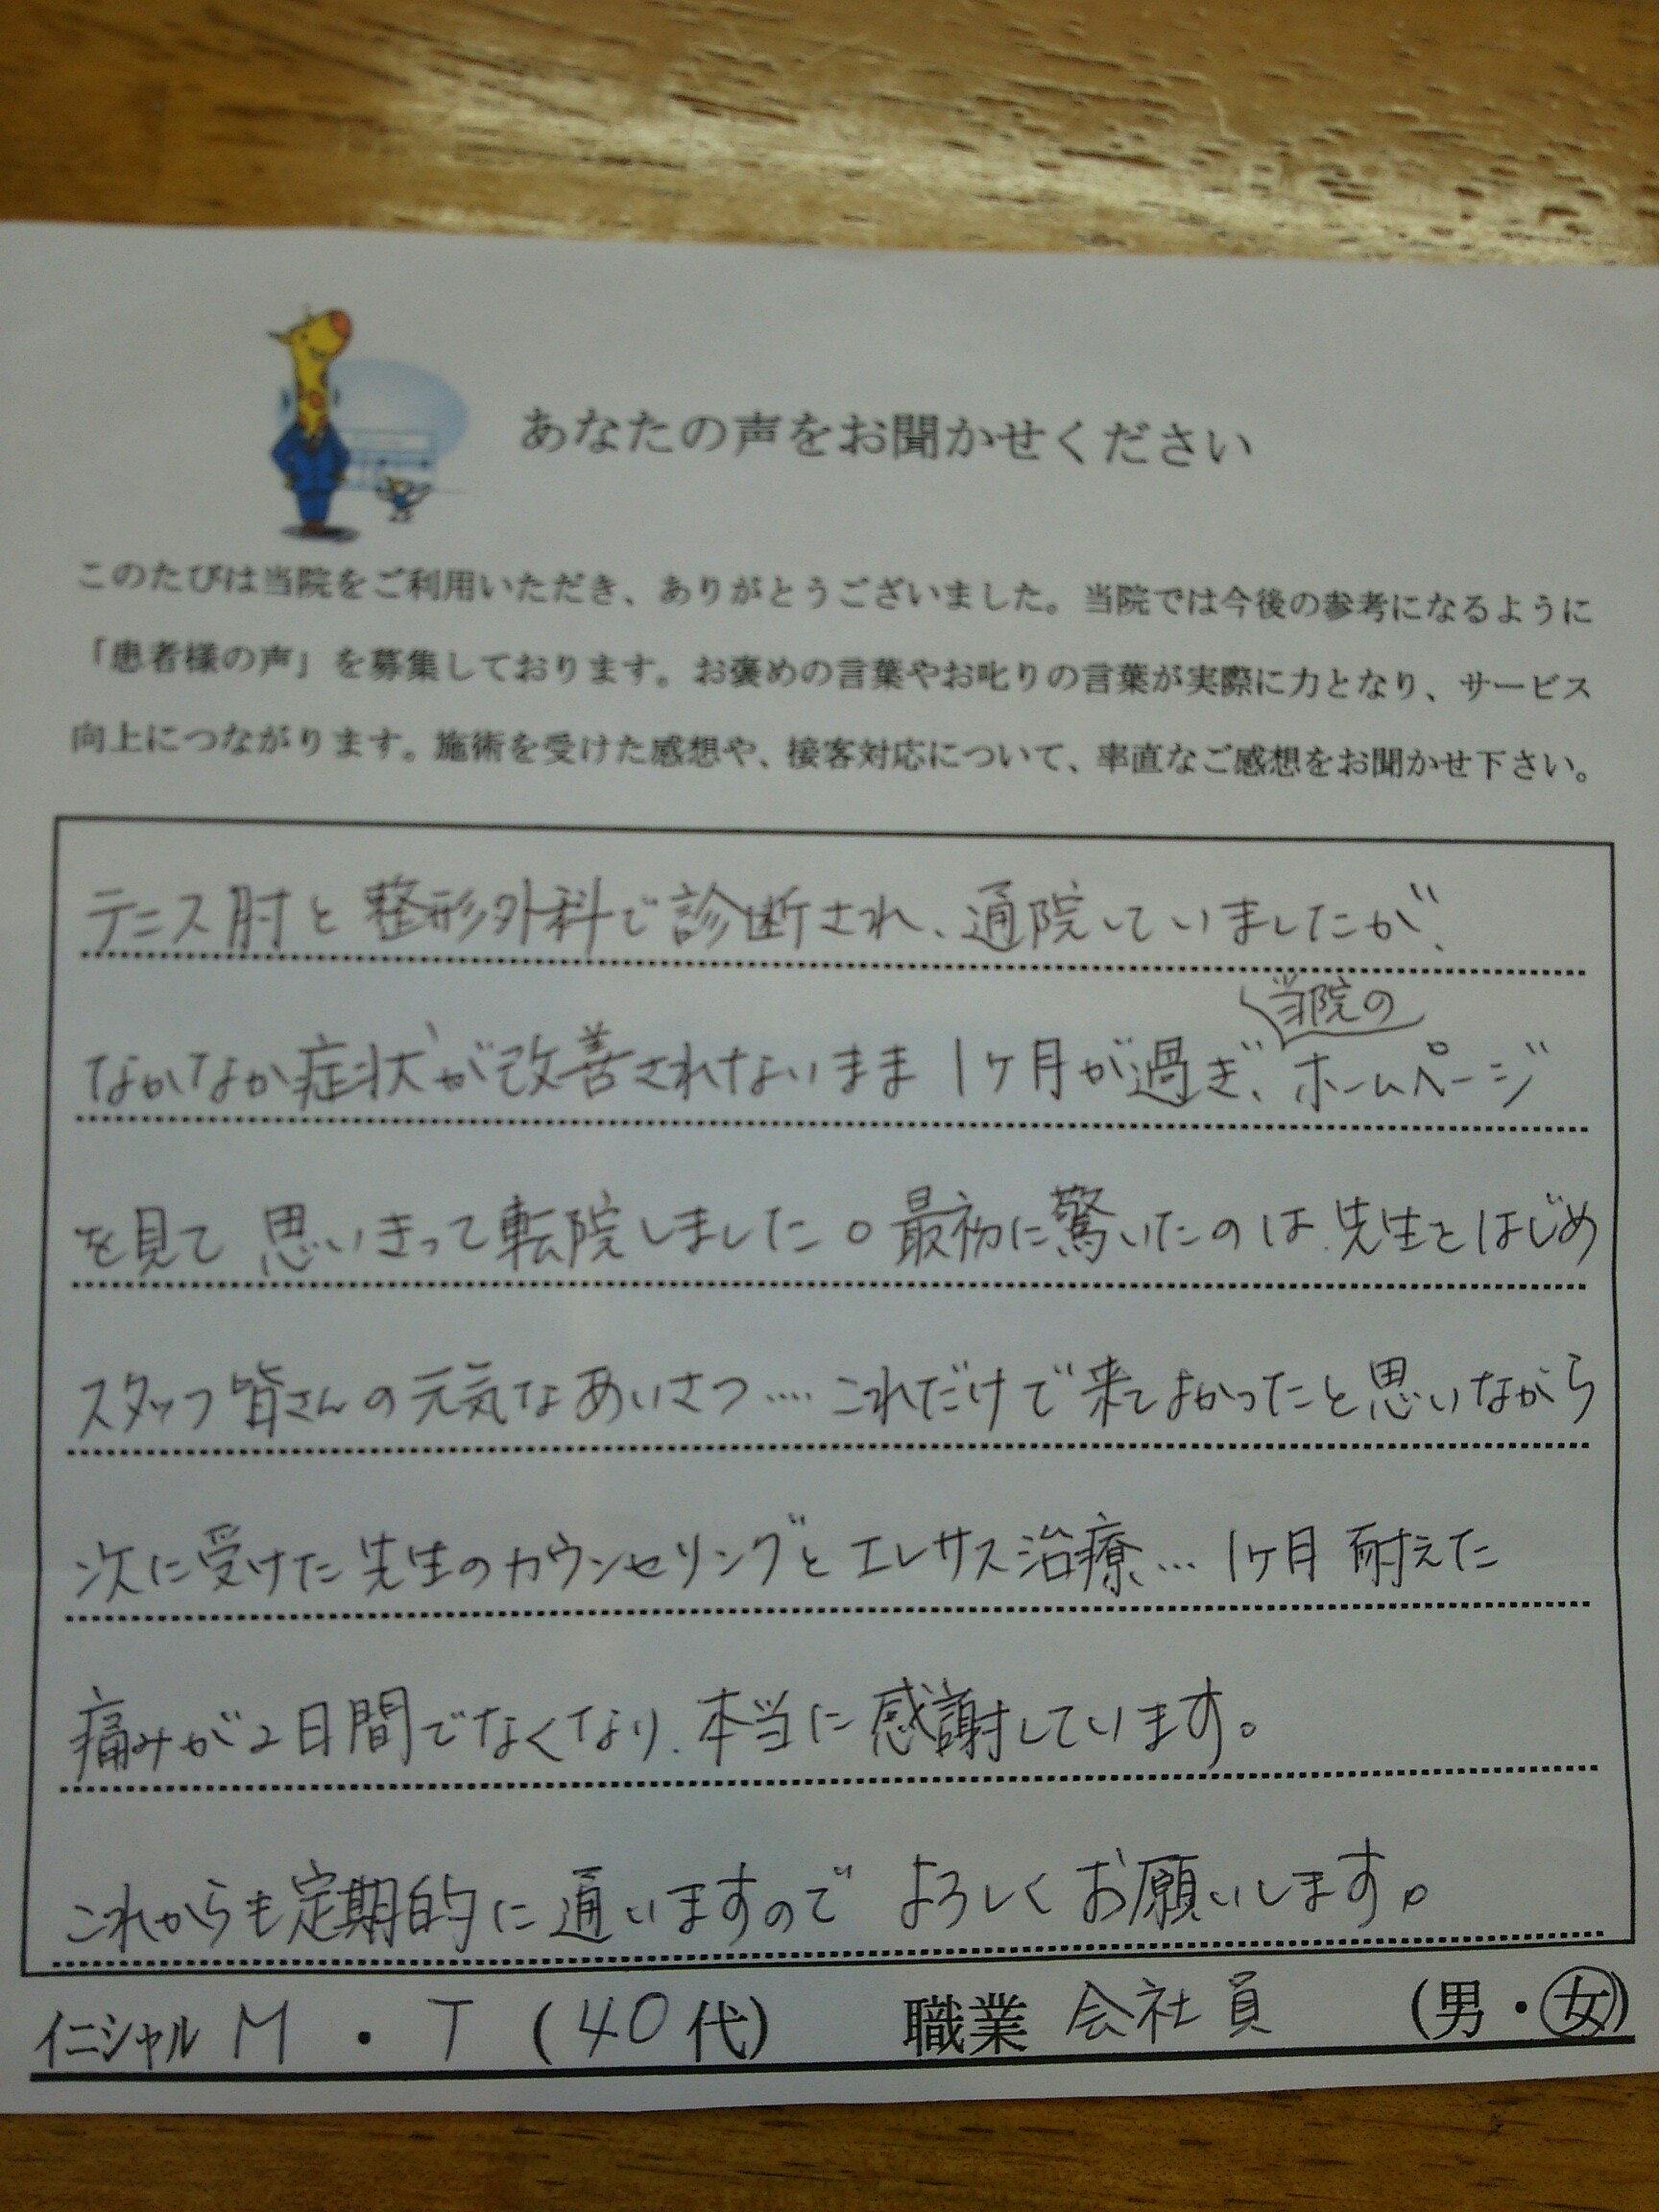 あなたの声をお聞かせください
このたびは当院をご利用いただき、ありがとうございました。当院では今後の参考になるように
「患者様の声」を募集しております。お褒めの言葉やお叱りの言葉が実際に力となり、サービス
向上につながります。施術を受けた感想や、接客対応について、率直なご感想をお聞かせ下さい。
テニス肘と整形外科で診断され、通院していましたが、
当院の
なかなか症状が改善されないまま1ヶ月が過ぎ、ホームページ
を見て 思いきって転院しました。最初に驚いたのは、先生とはじめ
スタッフ皆さんの元気なあいさつ‥‥これだけで来てよかったと思いながら
次に受けた先生のカウンセリングとエレサス治療…1ヶ月耐えた
痛みが2日間でなくなり、本当に感謝しています。
これからも定期的に通いますので よろしくお願いします。
イニシャル M ・ T (40代) 職業 会社員 (男・女)